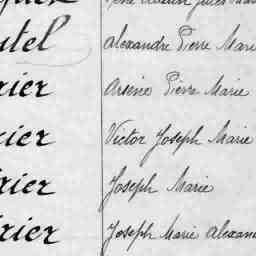 utel Alexandre Pierre Marie
rier Arsène Pierre Marie
rier Victor Joseph Marie
rier Joseph Marie
rier Joseph Marie Alexan